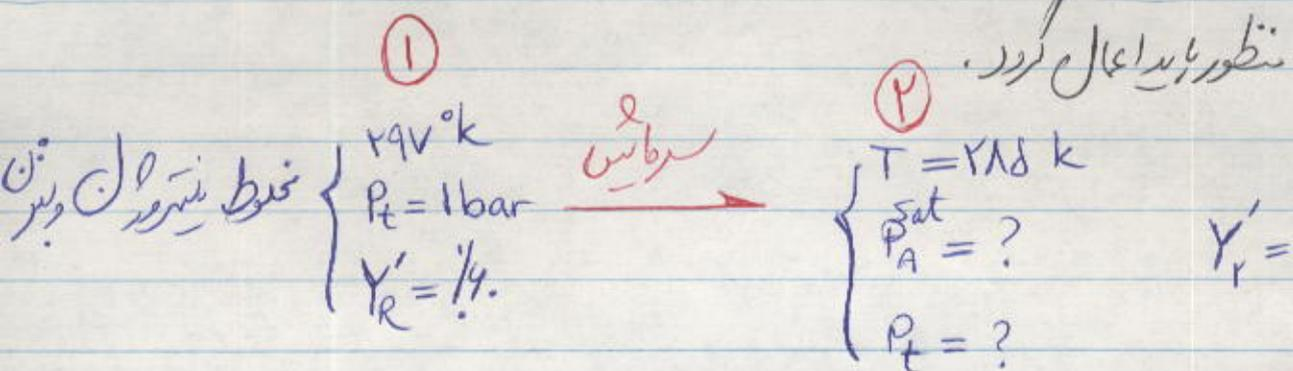 منظور باید اعمال گردد.
① ②
مخلوط نیتروژن و بنزن
۲۹۷°k
P_t = 1 bar
Y'_R = %۶۰
سرمایش
T = ۲۸۵ k
P_A^sat = ?
P_t = ?
Y'_۲ =